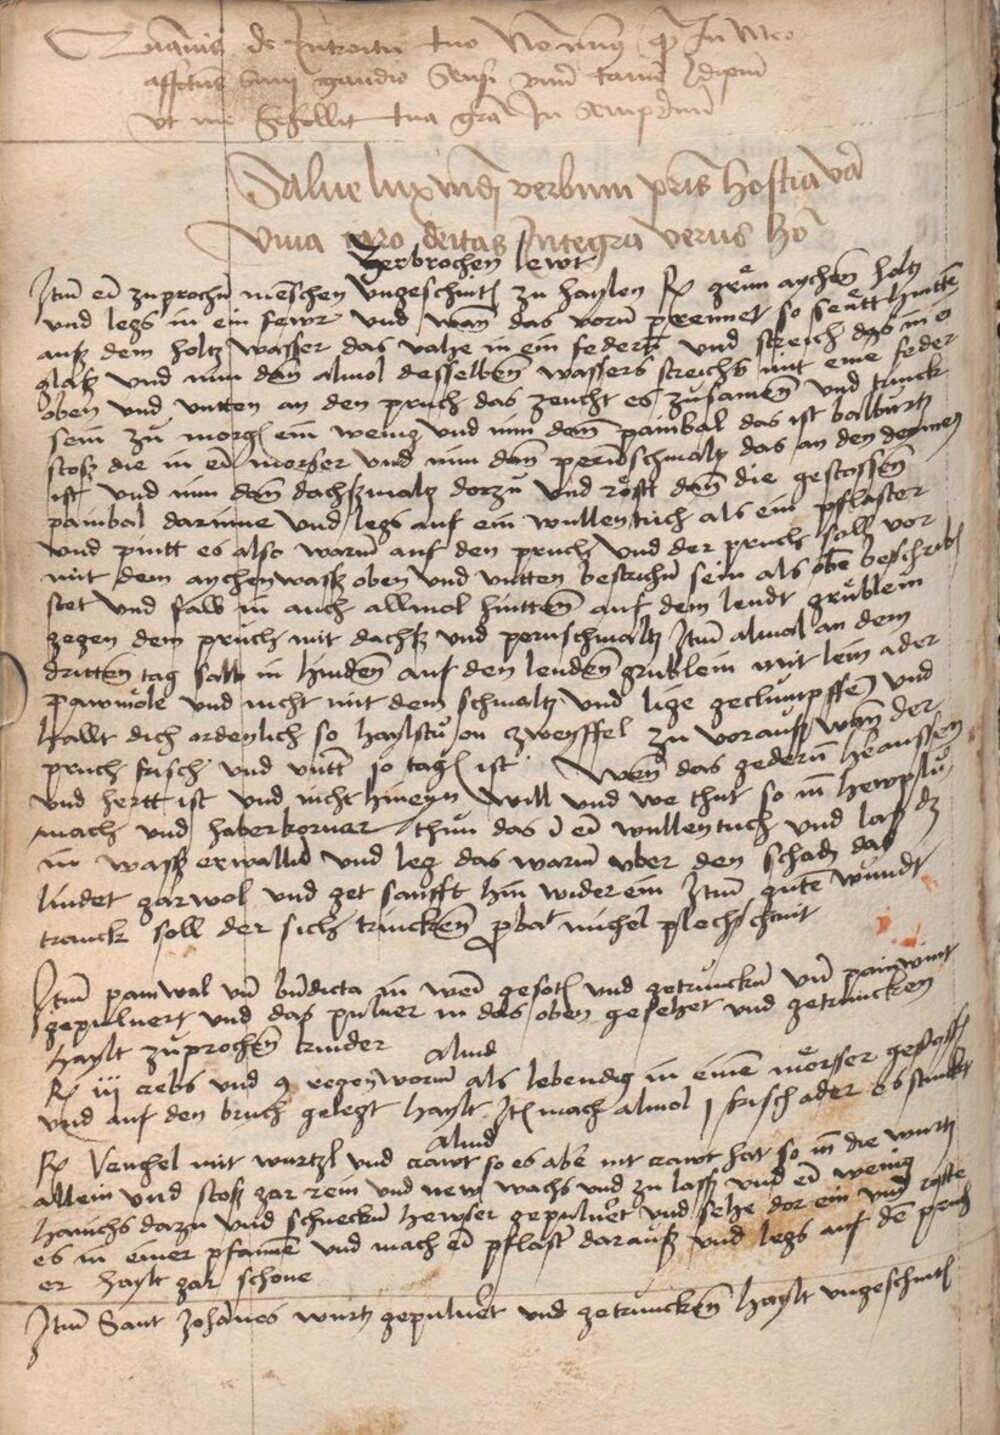 Quamvis de Introitu tuo
affectus sum gaudio
ut me tua gra In
Salue lux mūdj verbum pr̄is hostia v̄a
viua caro deitas Integra verus hō
Zerbrochen lewt
Itm̄ eī zuprochn̄ menschen vngeschnitñ zu haylen Rp grün aychen holtz
vnd legs in ein fewr vnd wan̄ das vorn̄ prennet so hintten̄
auß dem holtz wasser das vahe in ein vnd streich das in ein
glaß vnd nim dan̄ almol desselben wassers streichs mit eine feder
oben vnd vntten an den pruch das zeucht es zusamen̄ vnd trinck
sein zu morgens ein wenig vnd nim dan̄ painbal das ist balwurtz
stoß die in eī morser vnd nim dan̄ pernschmaltz das an den dermen
ist vnd nim dan̄ dachßmalz dorzu vnd röstt dan̄ die gestossen̄
painbal darinne vnd legs auf ein wullen tuch als ein pflaster
vnd pintt es also warm̄ auf den pruch vnd der pruch soll vor
mit dem aychen wasß oben vnd vntten bestrichn̄ sein als obē beschribn̄
stet vnd salb in auch allmol hintten̄ auf dem lendt grüblein
gegen dem pruch mit dachß vnd pernschmaltz Itm̄ almal an dem
dritten tag salb in hinden̄ auf den lenden̄ grublein mit lein ader
pawmöle vnd nicht mit dem schmaltz vnd lige vnd
hallt dich ordenlich so haylstu on zweyffel zu vorauß wan̄ der
pruch frisch vnd vntt̄ jo tagn̄ ist Wen̄ das gederm̄ heraussen
vnd hertt ist vnd nicht hineyn will vnd we thut so nī hewplu
mach vnd haberkorner thun das ī eī wullen tuch vnd laß dz
in wasß erwallnn̄ vnd leg das warm̄ vber den schadn̄ das
lindet gar wol vnd get saufft hin wider ein Itm̄ guten̄ wundt
tranck soll der sich trincken̄ ꝓbat michel plechschmit
Itm̄ painwal vn̄ bn̄dicta in wein gesotñ vnd getrunckn̄ vn̄ painwurtz
gepuluert vnd das puluer in das oben gesehet vnd getruncken
haylt zuprochen̄ kinder
Aliud
Rp iij crebs vnd 9 regenworm̄ als lebendig in eine mörser gestossñ
vnd auf den bruch gelegt haylt Itm̄ mach almol j frisch ader es stinckt
Aliud
Rp Venchel mit wurtzl vnd crawt so es abē nit crawt hat so nī die wurtz
allein vnd stoß gar rein vnd new wachs vnd zu laß vnd eī wenig
honichs dazu vnd schneckn̄ hewser gepuluēt vnd sehe dor ein vnd röste
es in einer pfannē vnd mach eī pflast̄ darauß vnd legs auf dē pruch
er haylt gar schone
Itm̄ Sant Johānes wurtz gepuluēt vnd getruncken̄ haylt vngeschnitñ